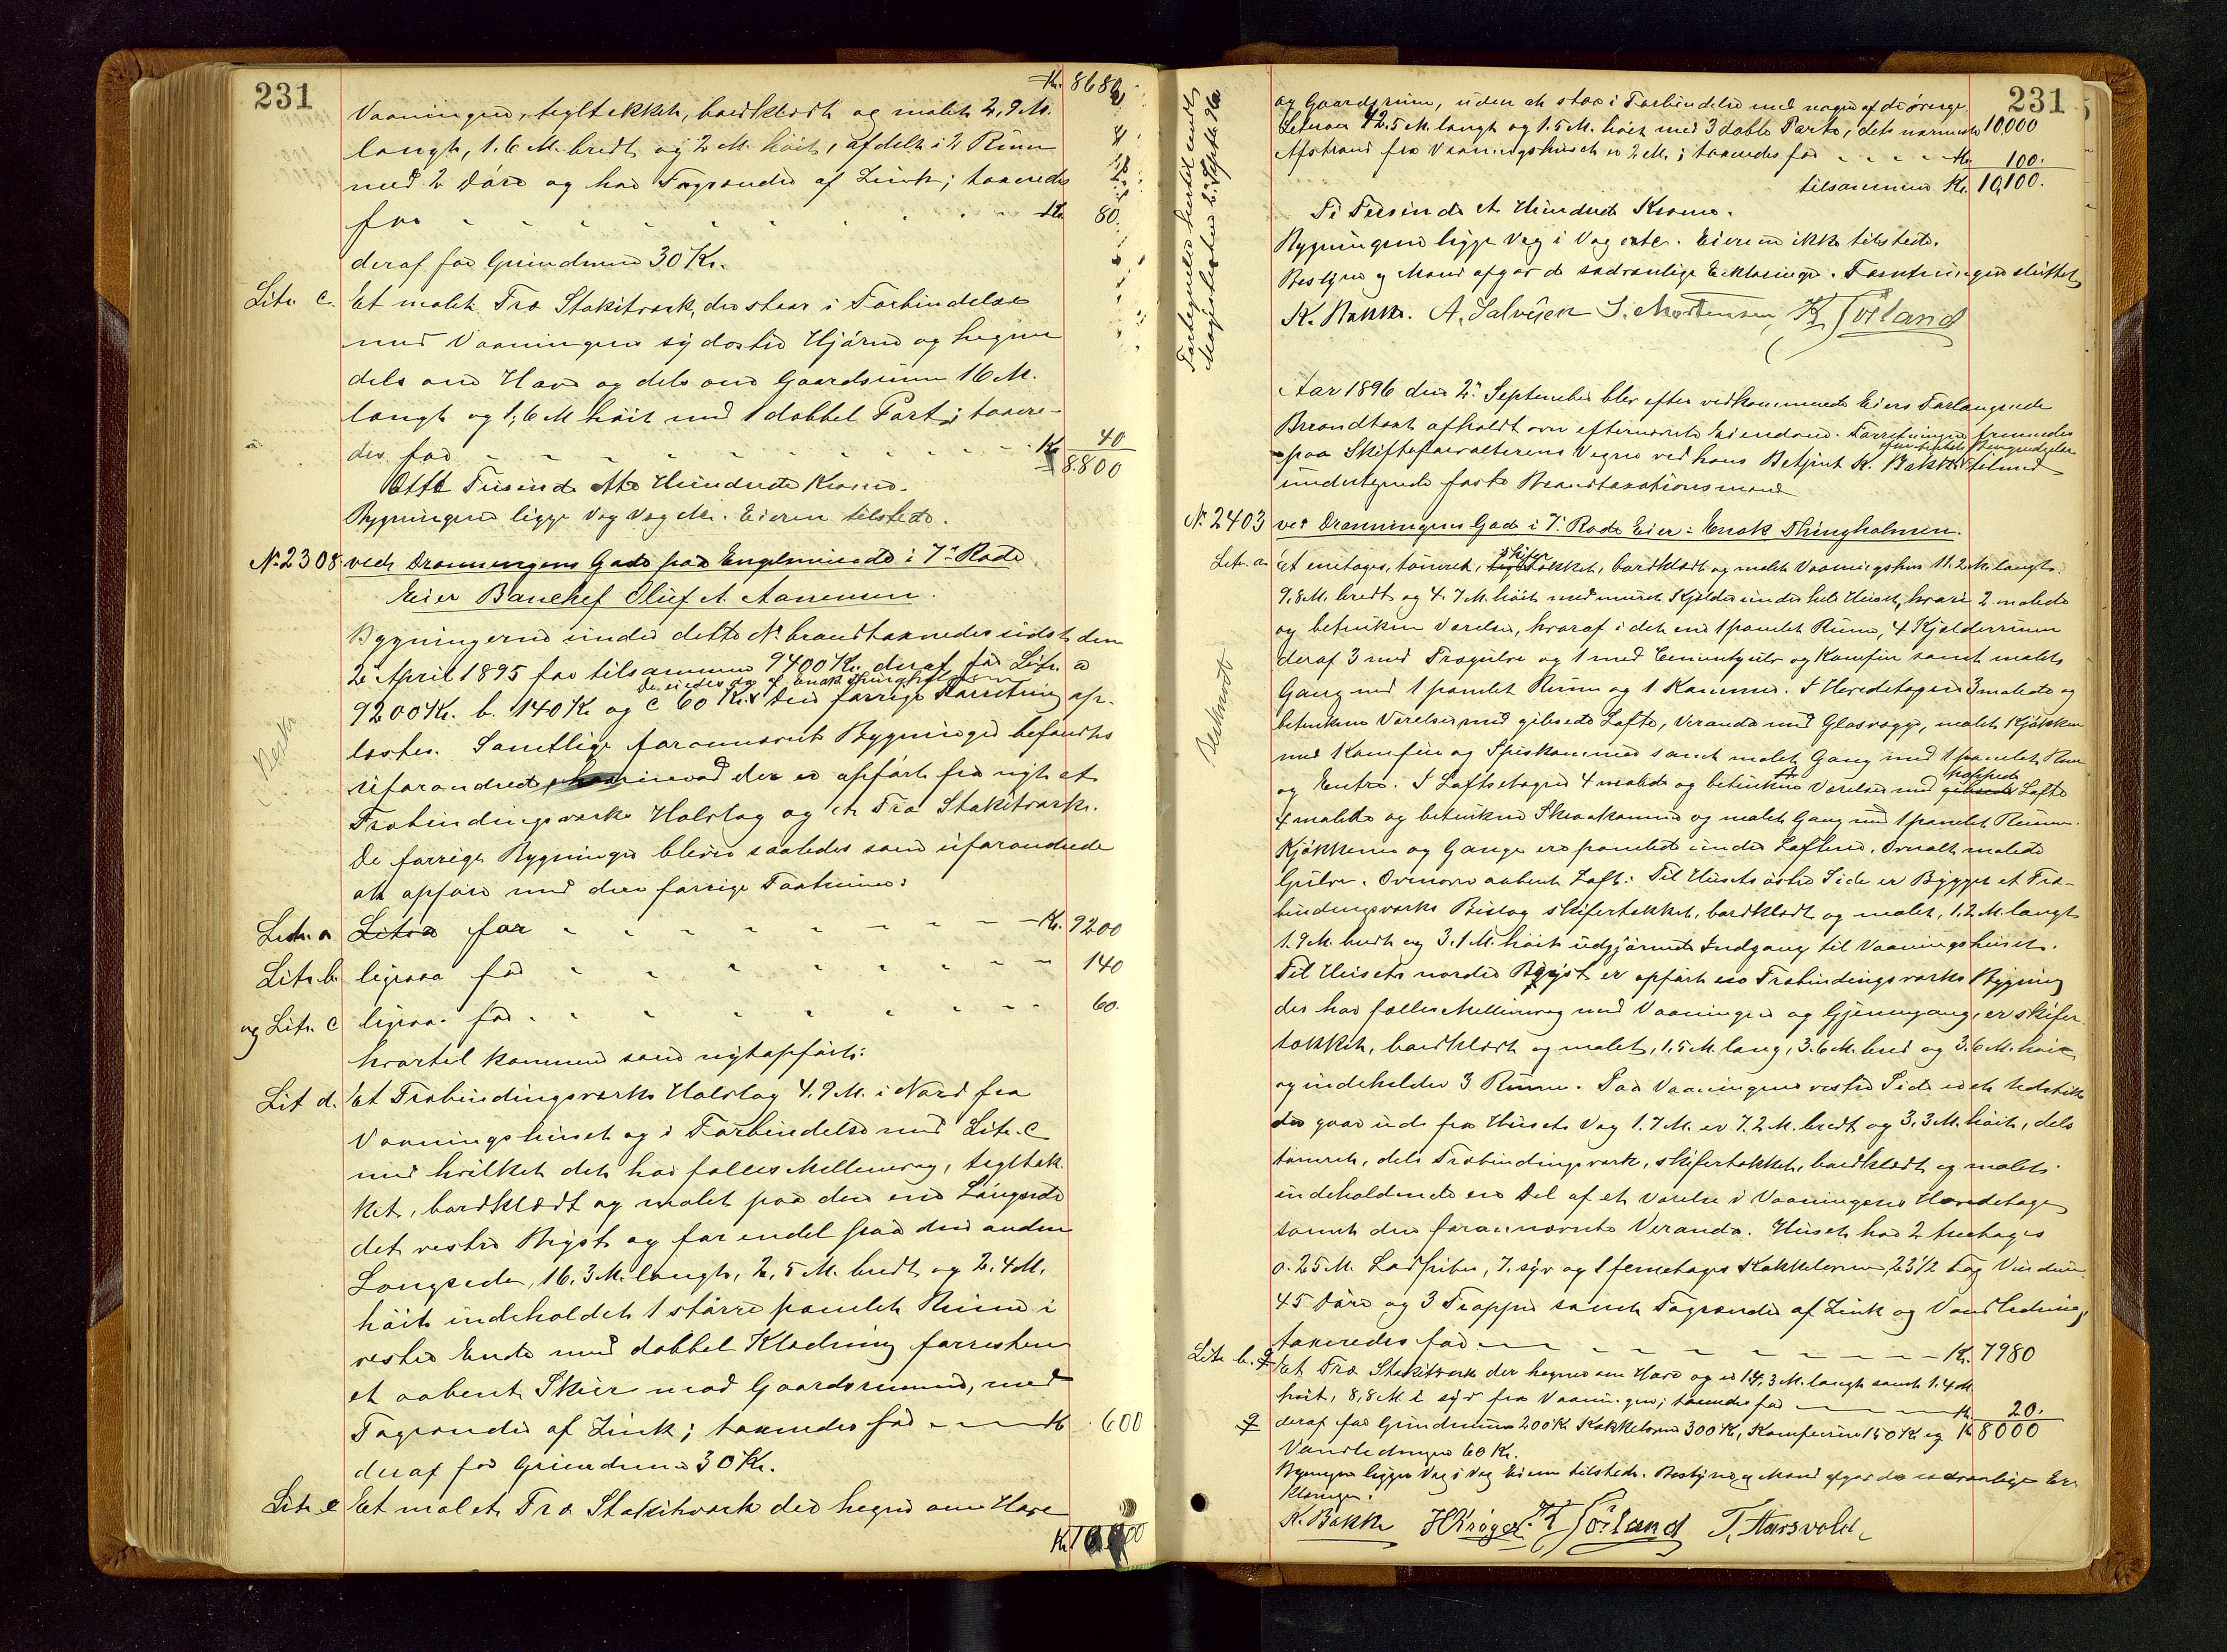 231
Kr. 8680
Vaaningen, tegltækket, bordklædt og malet 2,9 M.
langt, 1.6 M. bredt og 2 M. höit, afdelt i 2 Rum
med 2 Döre og har Tagrender af Zink; taxeredes
for - - - - Kr. 80.
deraf for Grundmur 30 Kr.
Litr. C. Et malet Træ Stakitværk, der staar i Forbindelse
med Vaaningens sydöstre Hjörne og hegner
dels om Have og dels om Gaardsrum 16 M.
langt og 1,6 M höit med 1 dobbel Port; taxere-
des for - - - - Kr. 40
8.800
Otte Tusinde Otte Hundrede Kroner.
Bygningerne ligge Væg Væg etc. Eieren tilstede.
No. 2308 ved Dronningens Gade paa Engelsminde i 7de Rode
Eier Banchef Oluf A. Aanensen.
Bygningerne under dette No. brandtaxeredes sidst den
2 April 1895 for tilsammen 9400 Kr. deraf for Litr. a
de eiedes da af Enok Thingholmen
9200 Kr. b. 140 Kr og C 60 Kr. Den forrige Forretning op-
læstes. Samtlige forannævnte Bygninger befandtes
uforandrede, der er opfört fra nyt et
Træbindingsværks Halvtag og et Træ Stakitværk.
De forrige Bygninger bleve saaledes som uforandrede
at opföre med den forrige Taxtsum:
Litr. a Litra for - - - - Kr. 9200
Litr. b. ligesaa for - - - - 140
og Litr. C ligesaa for - - - - 60.
hvortil kommer som nyt opfört:
Lit d. Et Træbindingsværks Halvtag 4.9 M. i Nord fra
Vaaningshuset og i Forbindelse med Litr. C
med hvilket det har fælles Mellemvæg, tegltæk-
ket, bordklædt og malet paa den ene Langside
det vestre Bryst og for endel paa den anden
Langside, 16.3 M. langt, 2.5 M. bredt og 2.4 M.
höit indeholdet 1 större panelet Rum i
vestre Ende med dobbel Klædning forresten
et aabent Skur mod Gaardsrummet, med
Tagrender af Zink; taxeredes for - - - Kr. 600
deraf for Grundmur 30 Kr.
Litr. e Et malet Træ Stakitværk der hegner om Have
Kr.
231
Restr
Fortegnelse hertil sendt
Magistraten 2. Septbr 96
og Gaardsrum, uden at staa i Forbindelse med nogen af de övrige
Litraer 42.5 M. langt og 1.5 M. höit med 3 doble Porte, dets nærmeste 10,000
Afstand fra Vaaningshuset er 2 M.; taxeredes for - - - - Kr. 100.
tilsammen Kr. 10,100.
Ti Tusinde et Hundrede Kroner.
Bygningerne ligge Væg i Væg etc. Eieren ikke tilstede.
Bestyrer og Mænd afgav de sædvanlige Erklæringer. Forretningen sluttet
K. Bakke. A. Salvesen S. Mortensen, K Törland
Aar 1896 den 2den September blev efter vedkommende Eiers Forlangende
Brandtaxt afholdt over efternævnte Eiendom. Forretningen fremmedes
paa Skifteforvalterens Vegne ved hans Betjent K. Bakke tilmed
undertegnede faste Brandtaxationsmænd
No. 2403 ved Dronningens Gade i 7. Rode Eier: Enok Thingholmen.
Litr. a. Et enetages, tömret, skifertækket, bordklædt og malet Vaaningshus 11.2 M. langt
9.8 M. bredt og 4.7 M. höit med muret Kjelder under hele Huset, hvori 2 malede
og betrukne Værelser, hvoraf i det ene 1 panelet Rum, 4 Kjelderrum
deraf 3 med Trægulve og 1 med Cementgulv og Komfur samt malet
Gang med 1 panelet Rum og 1 Kammer. I Hovedetagen 3 malede og
betrukne Værelser med gibsede Lofte, Veranda med Glasvægge, malet Kjökken
med 1 Komfur og Spiskammer samt malet Gang med 1 panelet Rum
og Entre. I Loftsetagen 4 malede og betrukne Værelser med pappede Lofte
4 malede og betrukne Skraakammer og malet Gang med 1 panelet Rum.
Kjökkener og Gange ere panelede under Lofterne. Overalt malede
Gulve. Ovenover aabent Loft. Til Husets östre Side er Bygget et Træ-
bindingsværks Bislag skifertækket, bordklædt og malet, 1.2 M. langt
1.9 M. bredt og 3.1 M. höit udgjörende Indgang til Vaaningshuset.
Til Husets nordre Bryst er opfört en Træbindingsværks Bygning
der har fælles Mellemvæg med Vaaningen og Gjennemgang, er skifer-
tækket, bordklædt og malet, 1.5 M. lang, 3.6 M. bred og 3.6 M. höi
og indeholder 3 Rum. Paa Vaaningens vestre Side er et Udstik
der gaar ud fra Husets Væg 1.7 M. er 7.2 M. bredt og 3,3 M. höit, dels
tömret, dels Træbindingsværk, skifertækket, bordklædt og malet
indeholdende en Del af et Værelse i Vaaningens Hovedetage
samt den forannævnte Veranda. Huset har 2 treetages
0.25 M. Lodpiber, 7. syv og 1 femetages Kakkelovne, 23½ Fag Vinduer
45 Döre og 3 Trapper samt Tagrender af Zink og Vandledning;
taxeredes for - - - - Kr. 7980
Litr. b. Et Træ Stakitværk der hegner om Have og er 14.3 M. langt samt 1.4 M
höit, 8,8 M. i syd fra Vaaningen; taxeredes for - - - Kr. 20.
deraf for Grundmur 200 Kr Kakkelovne 300 Kr, Komfurer 150 Kr og Kr 8000
Vandledningen 60 Kr.
Bygningen ligger Væg i Væg Eieren tilstede. Bestyrer og Mænd afgav de sædvanlige Er-
klæringer.
K. Bakke HKröger. K Törland T. Aarsvold